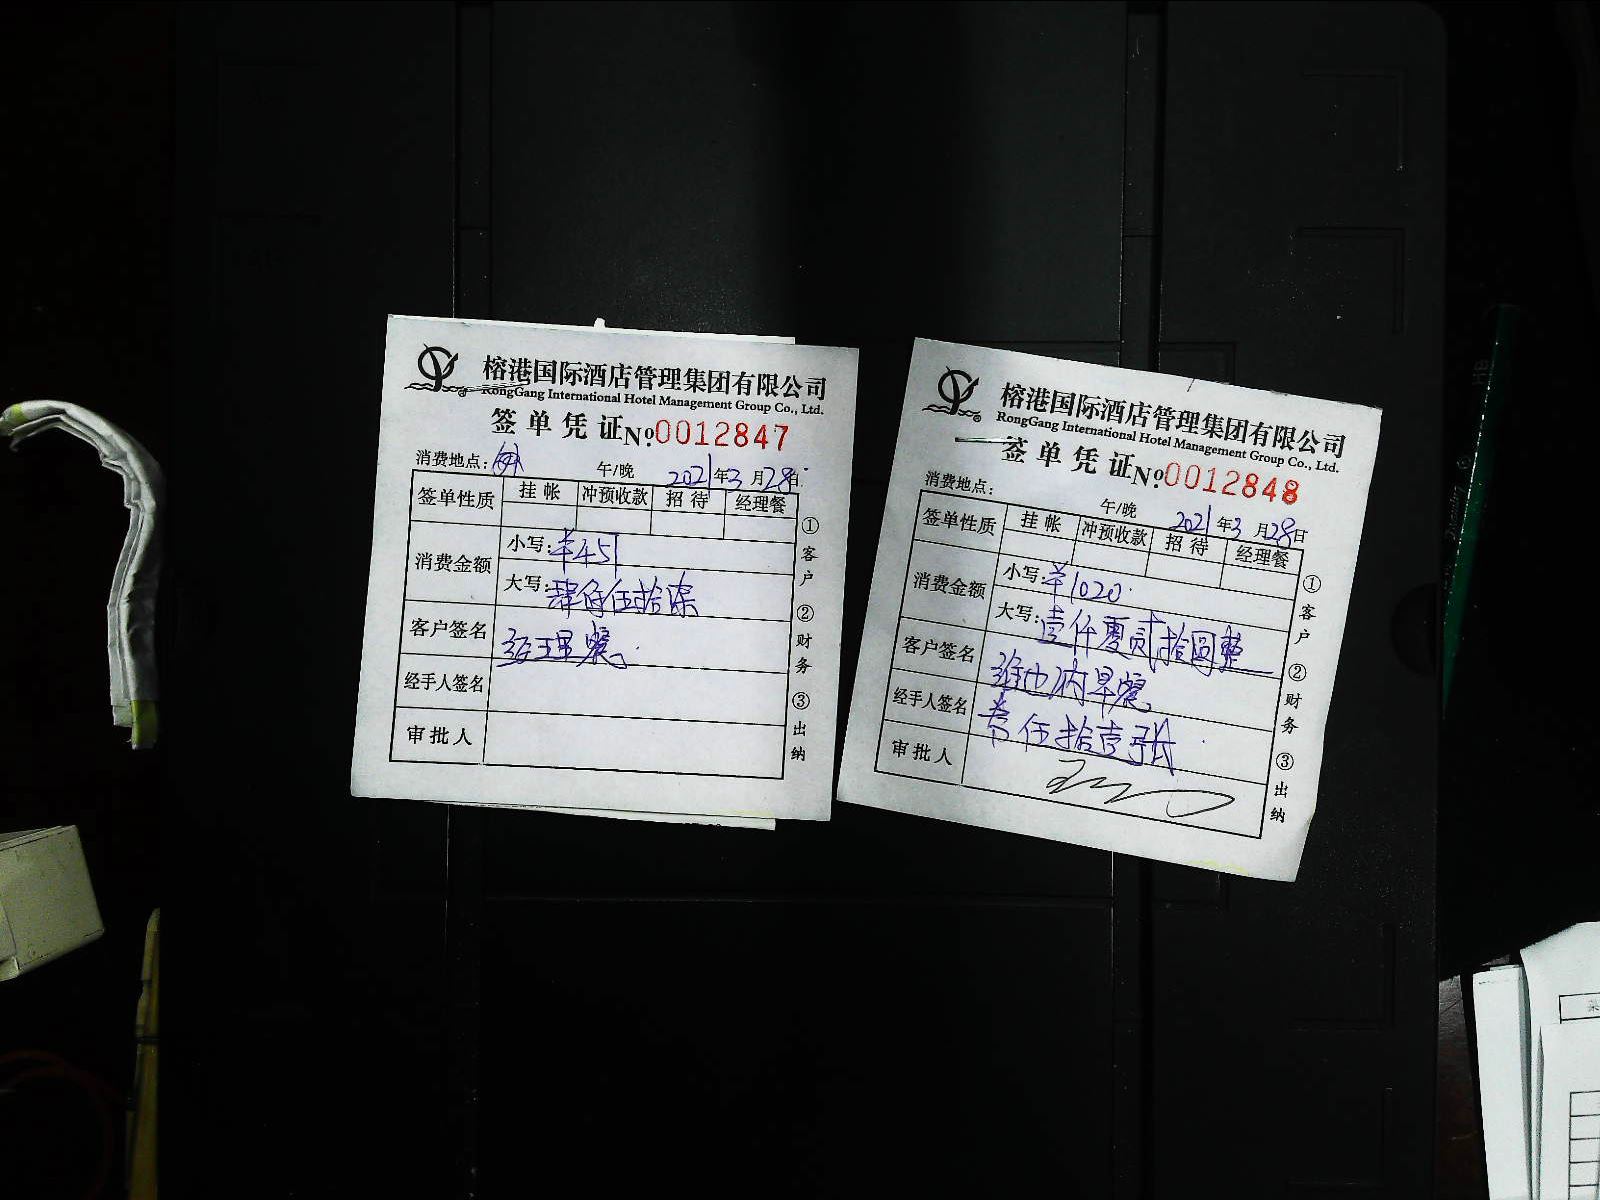 榕港国际酒店管理集团有限公司
RongGang International Hotel Management Group Co., Ltd.
签单凭证 №0012847
消费地点： 午/晚 2021年3月28日
签单性质 挂帐 冲预收款 招待 经理餐
消费金额 小写：¥451
大写：肆佰伍拾柒
客户签名 经理餐
经手人签名
审批人
①客户 ②财务 ③出纳
榕港国际酒店管理集团有限公司
RongGang International Hotel Management Group Co., Ltd.
签单凭证 №0012848
消费地点： 午/晚 2021年3月28日
签单性质 挂帐 冲预收款 招待 经理餐
消费金额 小写：¥1020
大写：壹仟零贰拾圆整
客户签名 维也纳早餐
经手人签名 券伍拾壹张
审批人
①客户 ②财务 ③出纳